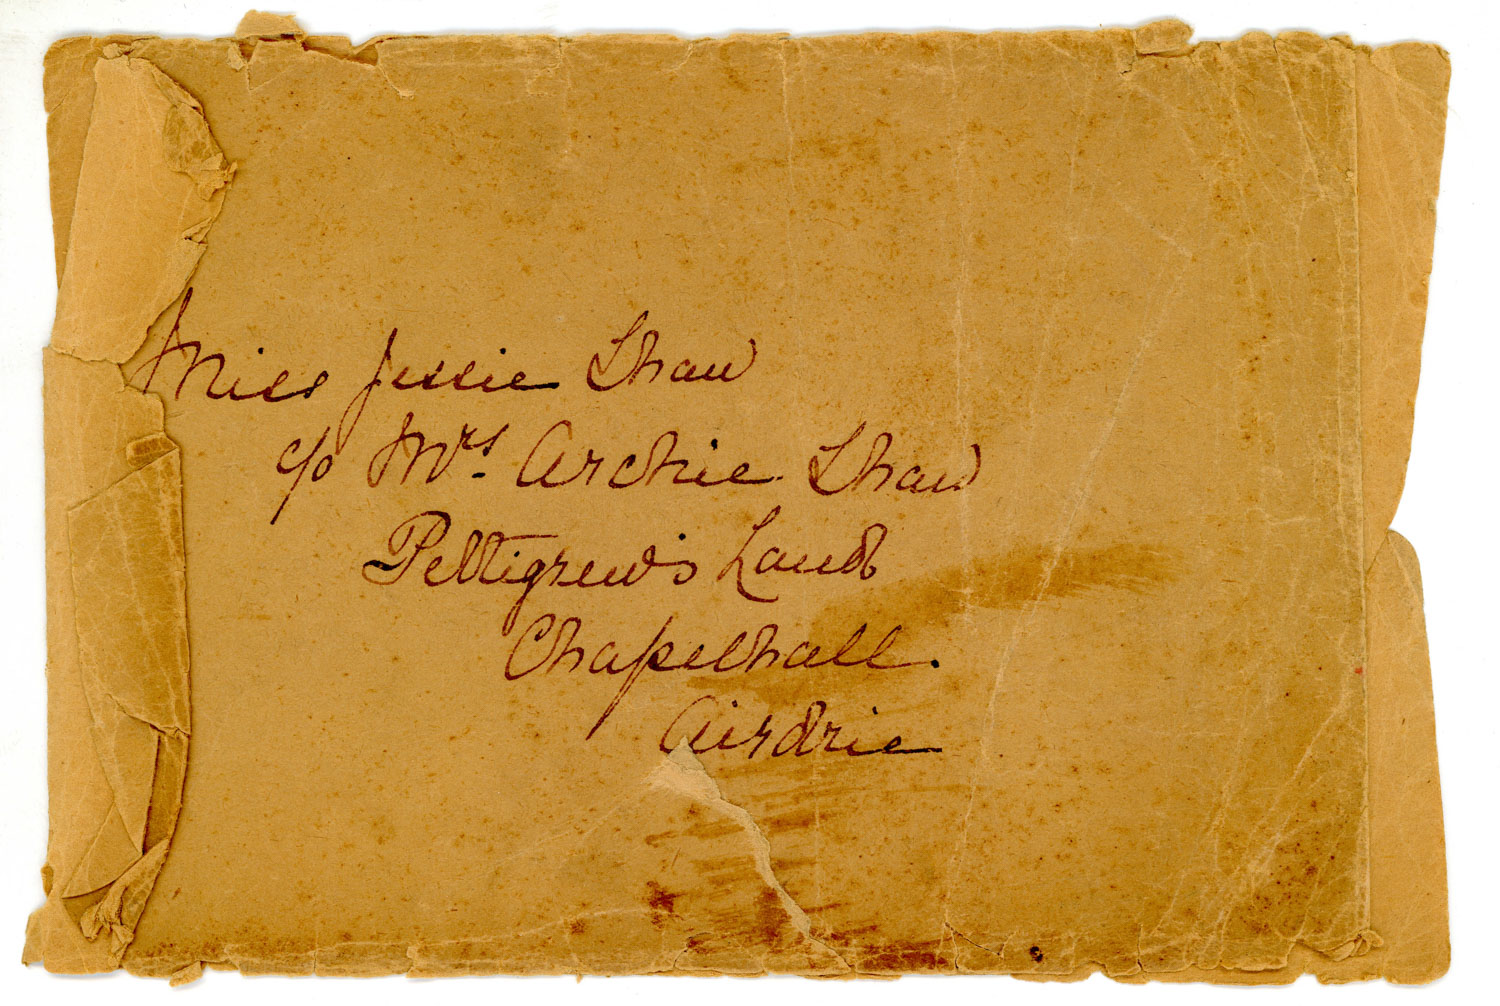 Miss Jessie Shaw
c/o Mrs. Archie Shaw
Pettigrew's Land
Chapelhall.
Airdrie